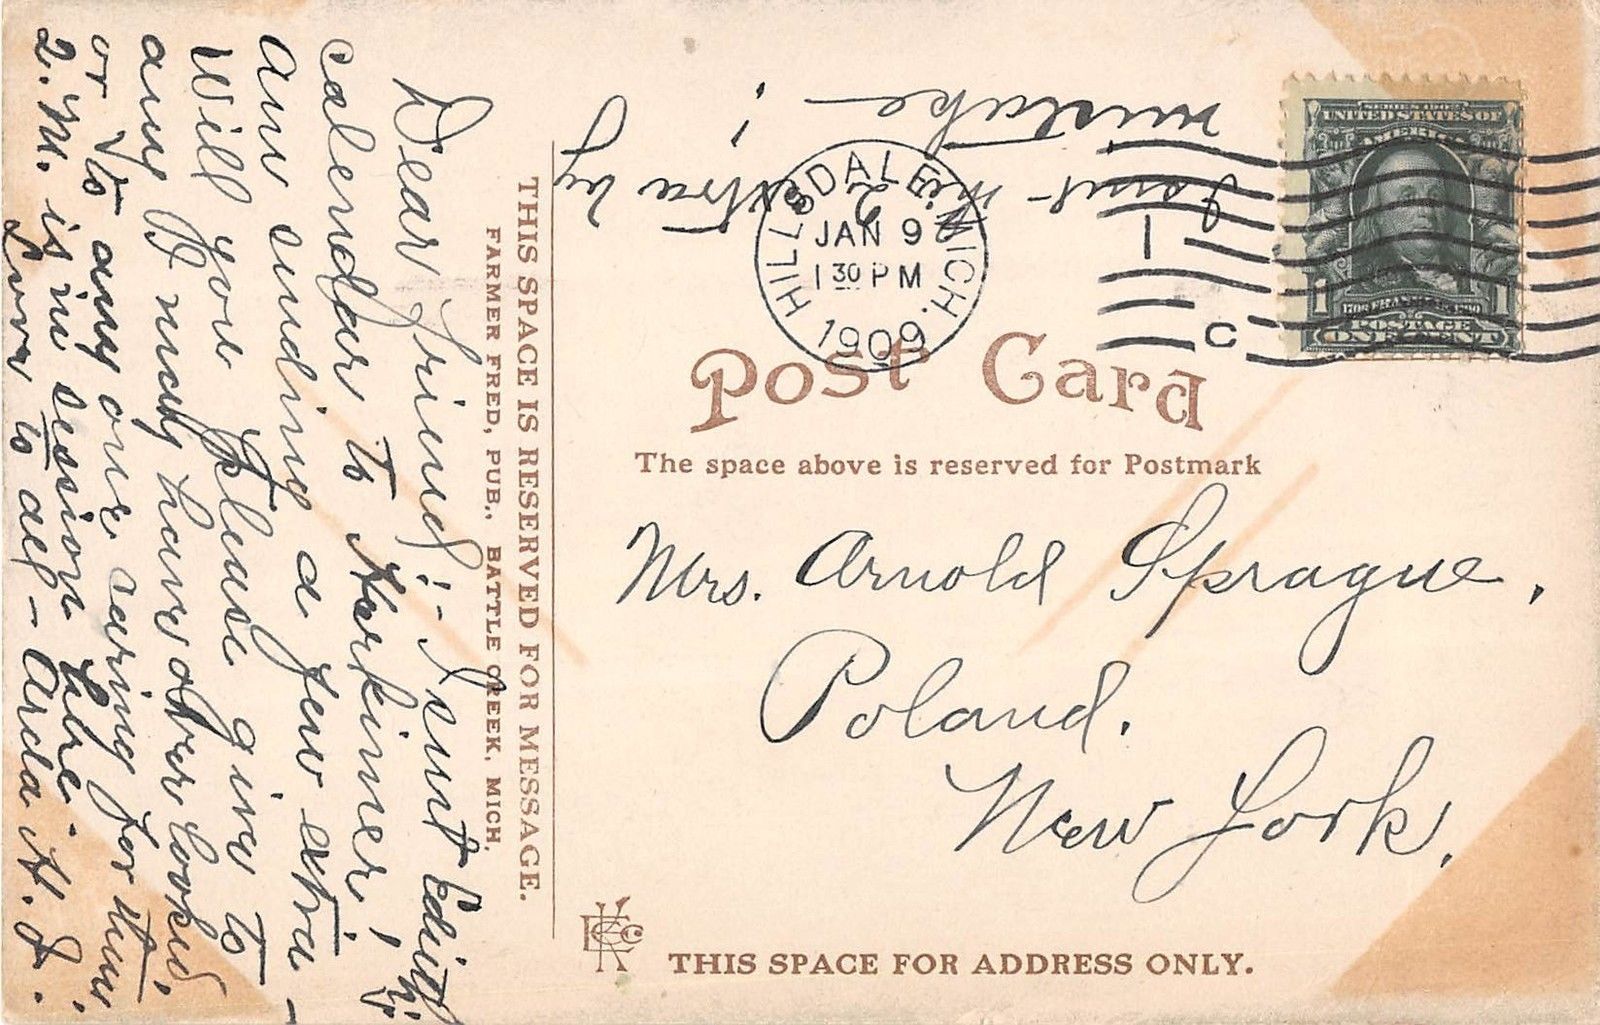 Dear friend:- I sent Edith's
calendar to Herkimer,
Am sending a few extra -
Will you please give to
any I may have overlooked,
or to any one caring for them.
Q.M. is in session here.
Love to all - Arda H. S.
I sent - mine extra by
mistake - !
THIS SPACE IS RESERVED FOR MESSAGE.
FARMER FRED, PUB., BATTLE CREEK, MICH.
HILLSDALE, MICH.
JAN 9
1 30 PM
1909
1
C
SERIES 1902
UNITED STATES OF
AMERICA
1 1
FRANKLIN
POSTAGE
ONE CENT
Post Card
The space above is reserved for Postmark
Mrs. Arnold Sprague,
Poland.
New York.
THIS SPACE FOR ADDRESS ONLY.